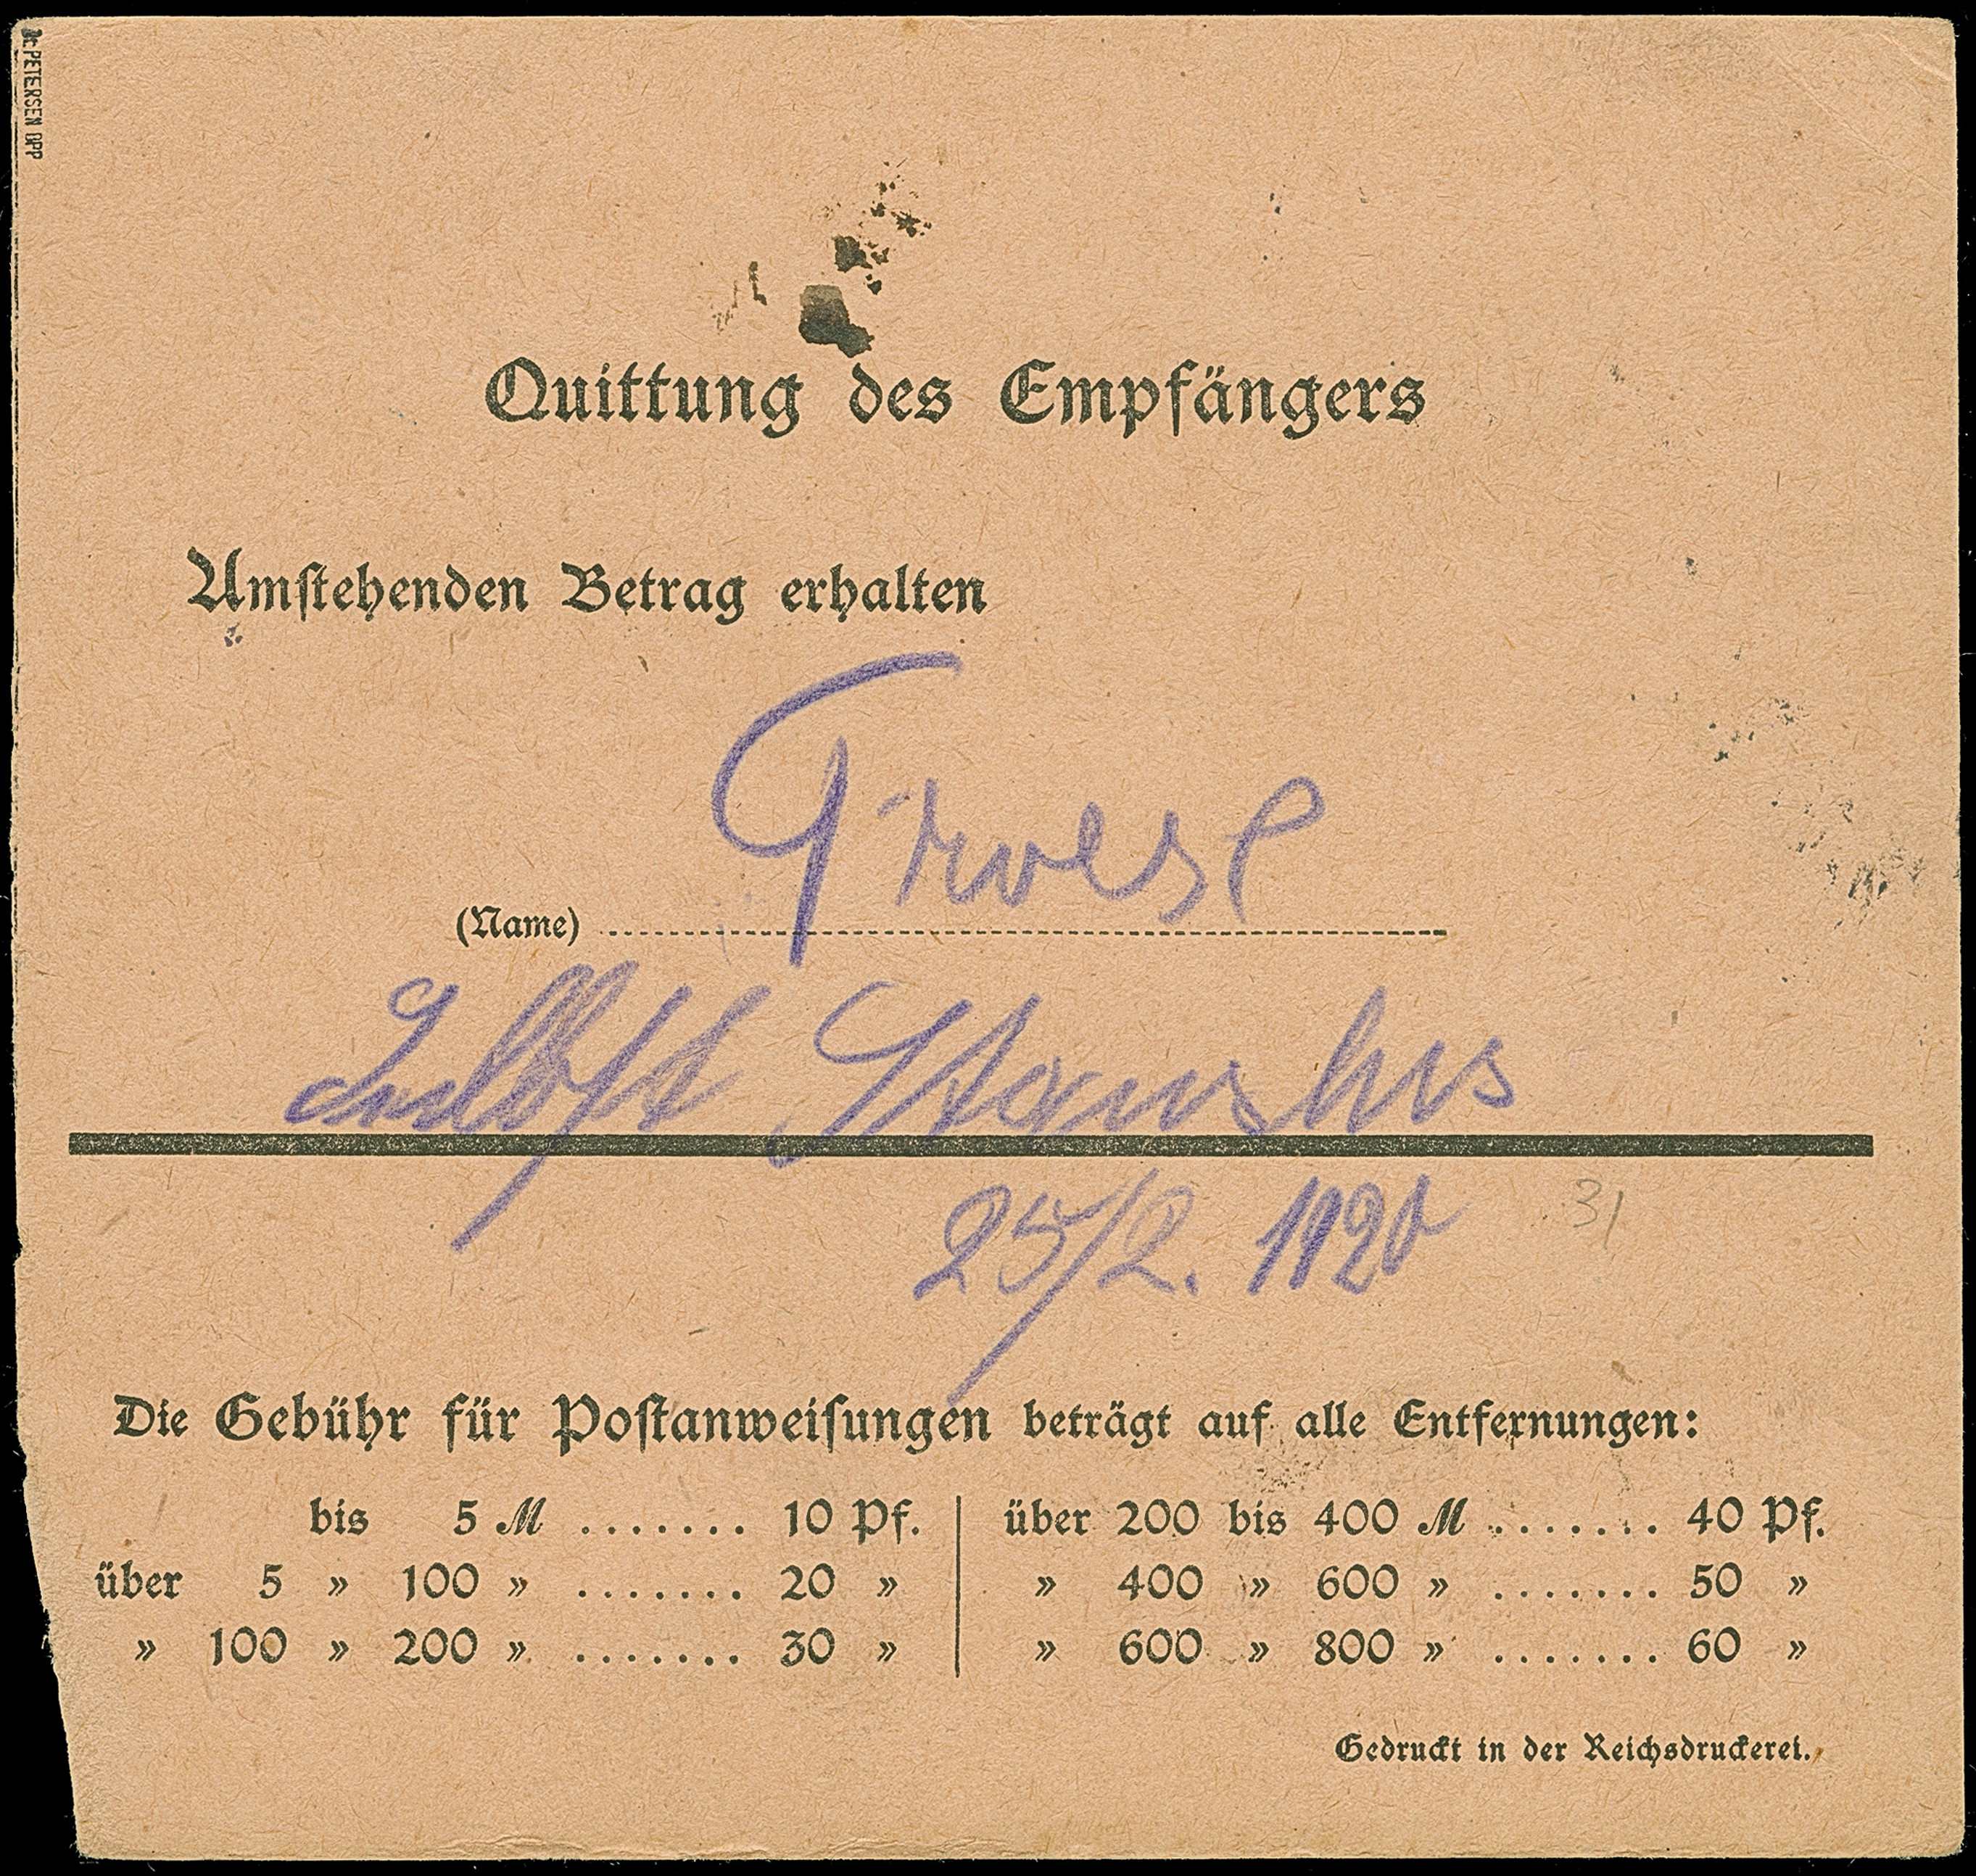 Dr. PETERSEN BPP
Quittung des Empfängers
Umſtehenden Betrag erhalten
(Name)
25/2. 1920
31
Die Gebühr für Poſtanweiſungen beträgt auf alle Entfernungen:
bis 5 ℳ ....... 10 Pf. | über 200 bis 400 ℳ ....... 40 Pf.
über 5 » 100 » ....... 20 » | » 400 » 600 » ....... 50 »
» 100 » 200 » ....... 30 » | » 600 » 800 » ....... 60 »
Gedruckt in der Reichsdruckerei.